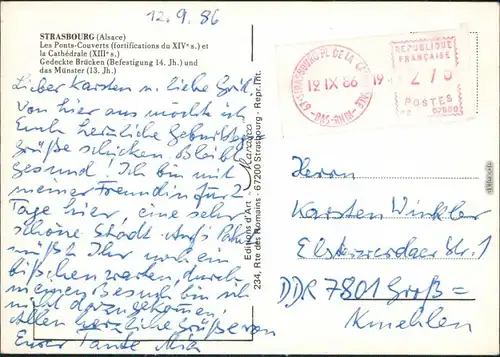 12.9.86
STRASBOURG (Alsace)
Les Ponts-Couverts (fortifications du XIVᵉ s.) et
la Cathédrale (XIIIᵉ s.)
Gedeckte Brücken (Befestigung 14. Jh.) und
das Münster (13. Jh.)
Lieber Karsten u. liebe
Von hier aus möchte ich
Euch herzliche Geburtstags
grüße schicken. Bleibt
gesund! Ich bin mit
meiner Freundin für 2
Tage hier, eine sehr
schöne Stadt. Aufs
müßt Ihr noch ein
bißchen warten, durch
meinen Besuch bin ich
nicht dazu gekommen.
Allen herzliche Grüße von
Eurer Tante Mia
Editions d'Art
234, Rte des Romains - 67200 Strasbourg - Repr. int.
67-STRASBOURG PL DE LA
BAS-RHIN
12 IX 86
REPUBLIQUE
FRANÇAISE
POSTES
Herrn
Karsten Winkler
Elsterwerdaer Str. 1
DDR 7801 Groß=
Kmehlen